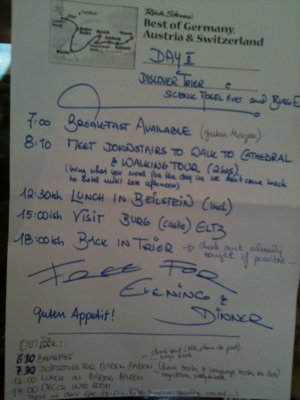 Rick Steves'
Best of Germany,
Austria & Switzerland
DAY II
DISCOVER TRIER &
SCENIC MOSEL RIVER AND BURG E
7:00 BREAKFAST AVAILABLE (guten Morgen)
8:10 MEET DOWNSTAIRS TO WALK TO CATHEDRAL
& WALKING TOUR (2 hrs)
(bring what you need for the day as we don't come back
to hotel until late afternoon)
12:30ish LUNCH IN BEILSTEIN (incl)
15:00ish VISIT BURG (castle) ELTZ
18:00ish BACK IN TRIER → check out already
tonight if possible
FREE FOR
EVENING &
DINNER
Guten Appetit!
OUTLOOK:
6:30 BREAKFAST
7:30 DEPARTURE FOR BADEN BADEN
12:00 LUNCH IN BADEN BADEN
14:00 CHECK INTO ROOM
Rest of day for